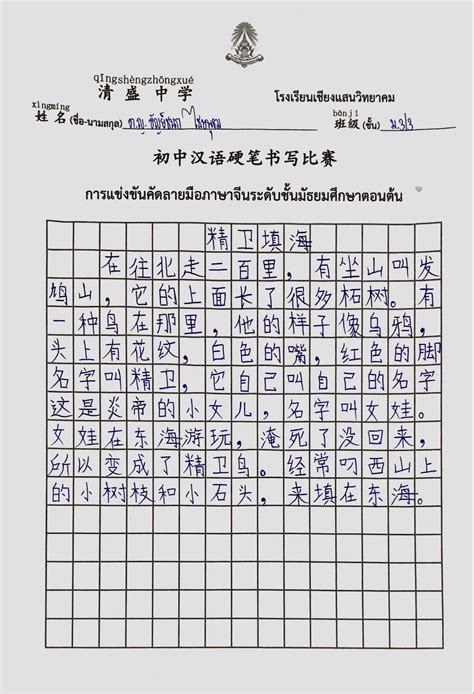 qīngshèngzhōngxué
清盛中学
โรงเรียนเชียงแสนวิทยาคม
xìngmíng
姓名(ชื่อ-นามสกุล) ด.ญ.
bānjí
班级(ชั้น) ม.3/3
初中汉语硬笔书写比赛
การแข่งขันคัดลายมือภาษาจีนระดับชั้นมัธยมศึกษาตอนต้น
精卫填海
在往北走二百里，有坐山叫发
鸠山，它的上面长了很多柘树。有
一种鸟在那里，他的样子像乌鸦，
头上有花纹，白色的嘴，红色的脚
名字叫精卫，它自己叫自己的名字
这是炎帝的小女儿，名字叫女娃。
女娃在东海游玩，淹死了没回来，
所以变成了精卫鸟。经常叼西山上
的小树枝和小石头，来填在东海。